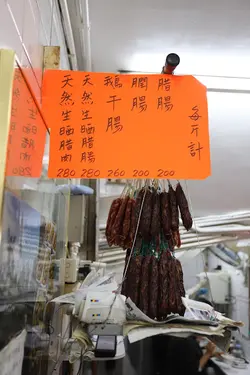 每斤計
腊腸 200
膶腸 200
鵝干腸 260
天然生晒腊腸 280
天然生晒腊肉 280